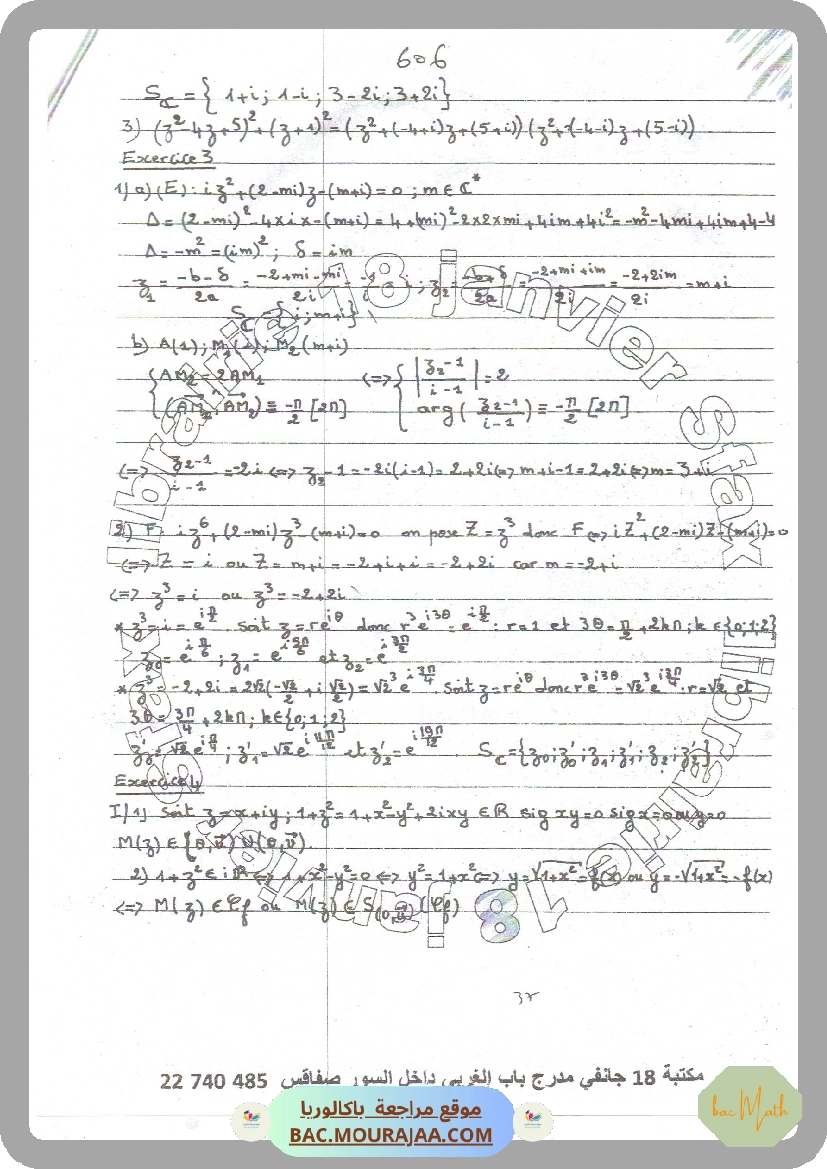 606
S_ℂ = { 1+i ; 1-i ; 3-2i ; 3+2i }
3) (z²-4z+5)² + (z+1)² = (z²+(-4+i)z+(5+i)) (z²+(-4-i)z+(5-i))
Exercice 3
1) a) (E) : iz²+(2-mi)z-(m+i)=0 ; m∈ℂ*
Δ = (2-mi)²-4×i×-(m+i) = 4+(mi)²-2×2×mi+4im+4i² = -m²-4mi+4im+4-4
Δ = -m² = (im)² ; δ = im
z₁ = (-b-δ)/2a = (-2+mi-mi)/2i ; z₂ = (-b+δ)/2a = (-2+mi+im)/2i = (-2+2im)/2i = m+i
S_ℂ = { i ; m+i }
b) A(1) ; M₁(i) ; M₂(m+i)
{ AM₂ = 2AM₁ <=> { |(z₂-1)/(i-1)| = 2
{ (AM₁, AM₂) ≡ -π/2 [2π] { arg((z₂-1)/(i-1)) ≡ -π/2 [2π]
<=> (z₂-1)/(i-1) = -2i <=> z₂-1 = -2i(i-1) = 2+2i <=> m+i-1 = 2+2i <=> m = 3+i
2) F: iz⁶+(2-mi)z³-(m+i)=0 on pose Z = z³ donc F <=> iZ²+(2-mi)Z-(m+i)=0
<=> Z = i ou Z = m+i = -2+i+i = -2+2i car m = -2+i
<=> z³ = i ou z³ = -2+2i
* z³ = i = e^{iπ/2} soit z = re^{iθ} donc r³e^{i3θ} = e^{iπ/2} : r=1 et 3θ = π/2 + 2kπ ; k∈{0;1;2}
z₀ = e^{iπ/6} ; z₁ = e^{i5π/6} et z₂ = e^{i3π/2}
* z³ = -2+2i = 2√2(-√2/2 + i√2/2) = √2³ e^{i3π/4} Soit z = re^{iθ} donc r³e^{i3θ} = √2³ e^{i3π/4} . r=√2 et
3θ = 3π/4 + 2kπ ; k∈{0;1;2}
z'₀ = √2 e^{iπ/4} ; z'₁ = √2 e^{i11π/12} et z'₂ = e^{i19π/12} S_ℂ = {z₀;z'₀;z₁;z'₁;z₂;z'₂}
Exercice 4
I/ 1) Soit z = x+iy ; 1+z² = 1+x²-y²+2ixy ∈ℝ sig xy=0 sig x=0 ou y=0
M(z) ∈ (0,u) ∪ (0,v)
2) 1+z² ∈ iℝ <=> 1+x²-y²=0 <=> y²=1+x² <=> y=√(1+x²) = f(x) ou y=-√(1+x²) = -f(x)
<=> M(z) ∈ 𝒞f ou M(z) ∈ S_(0,u)(𝒞f)
librairie 18 janvier Sfax
librairie 18 janvier Sfax
مكتبة 18 جانفي مدرج باب الغربي داخل السور صفاقس 22 740 485
موقع مراجعة باكالوريا
BAC.MOURAJAA.COM
bac Math